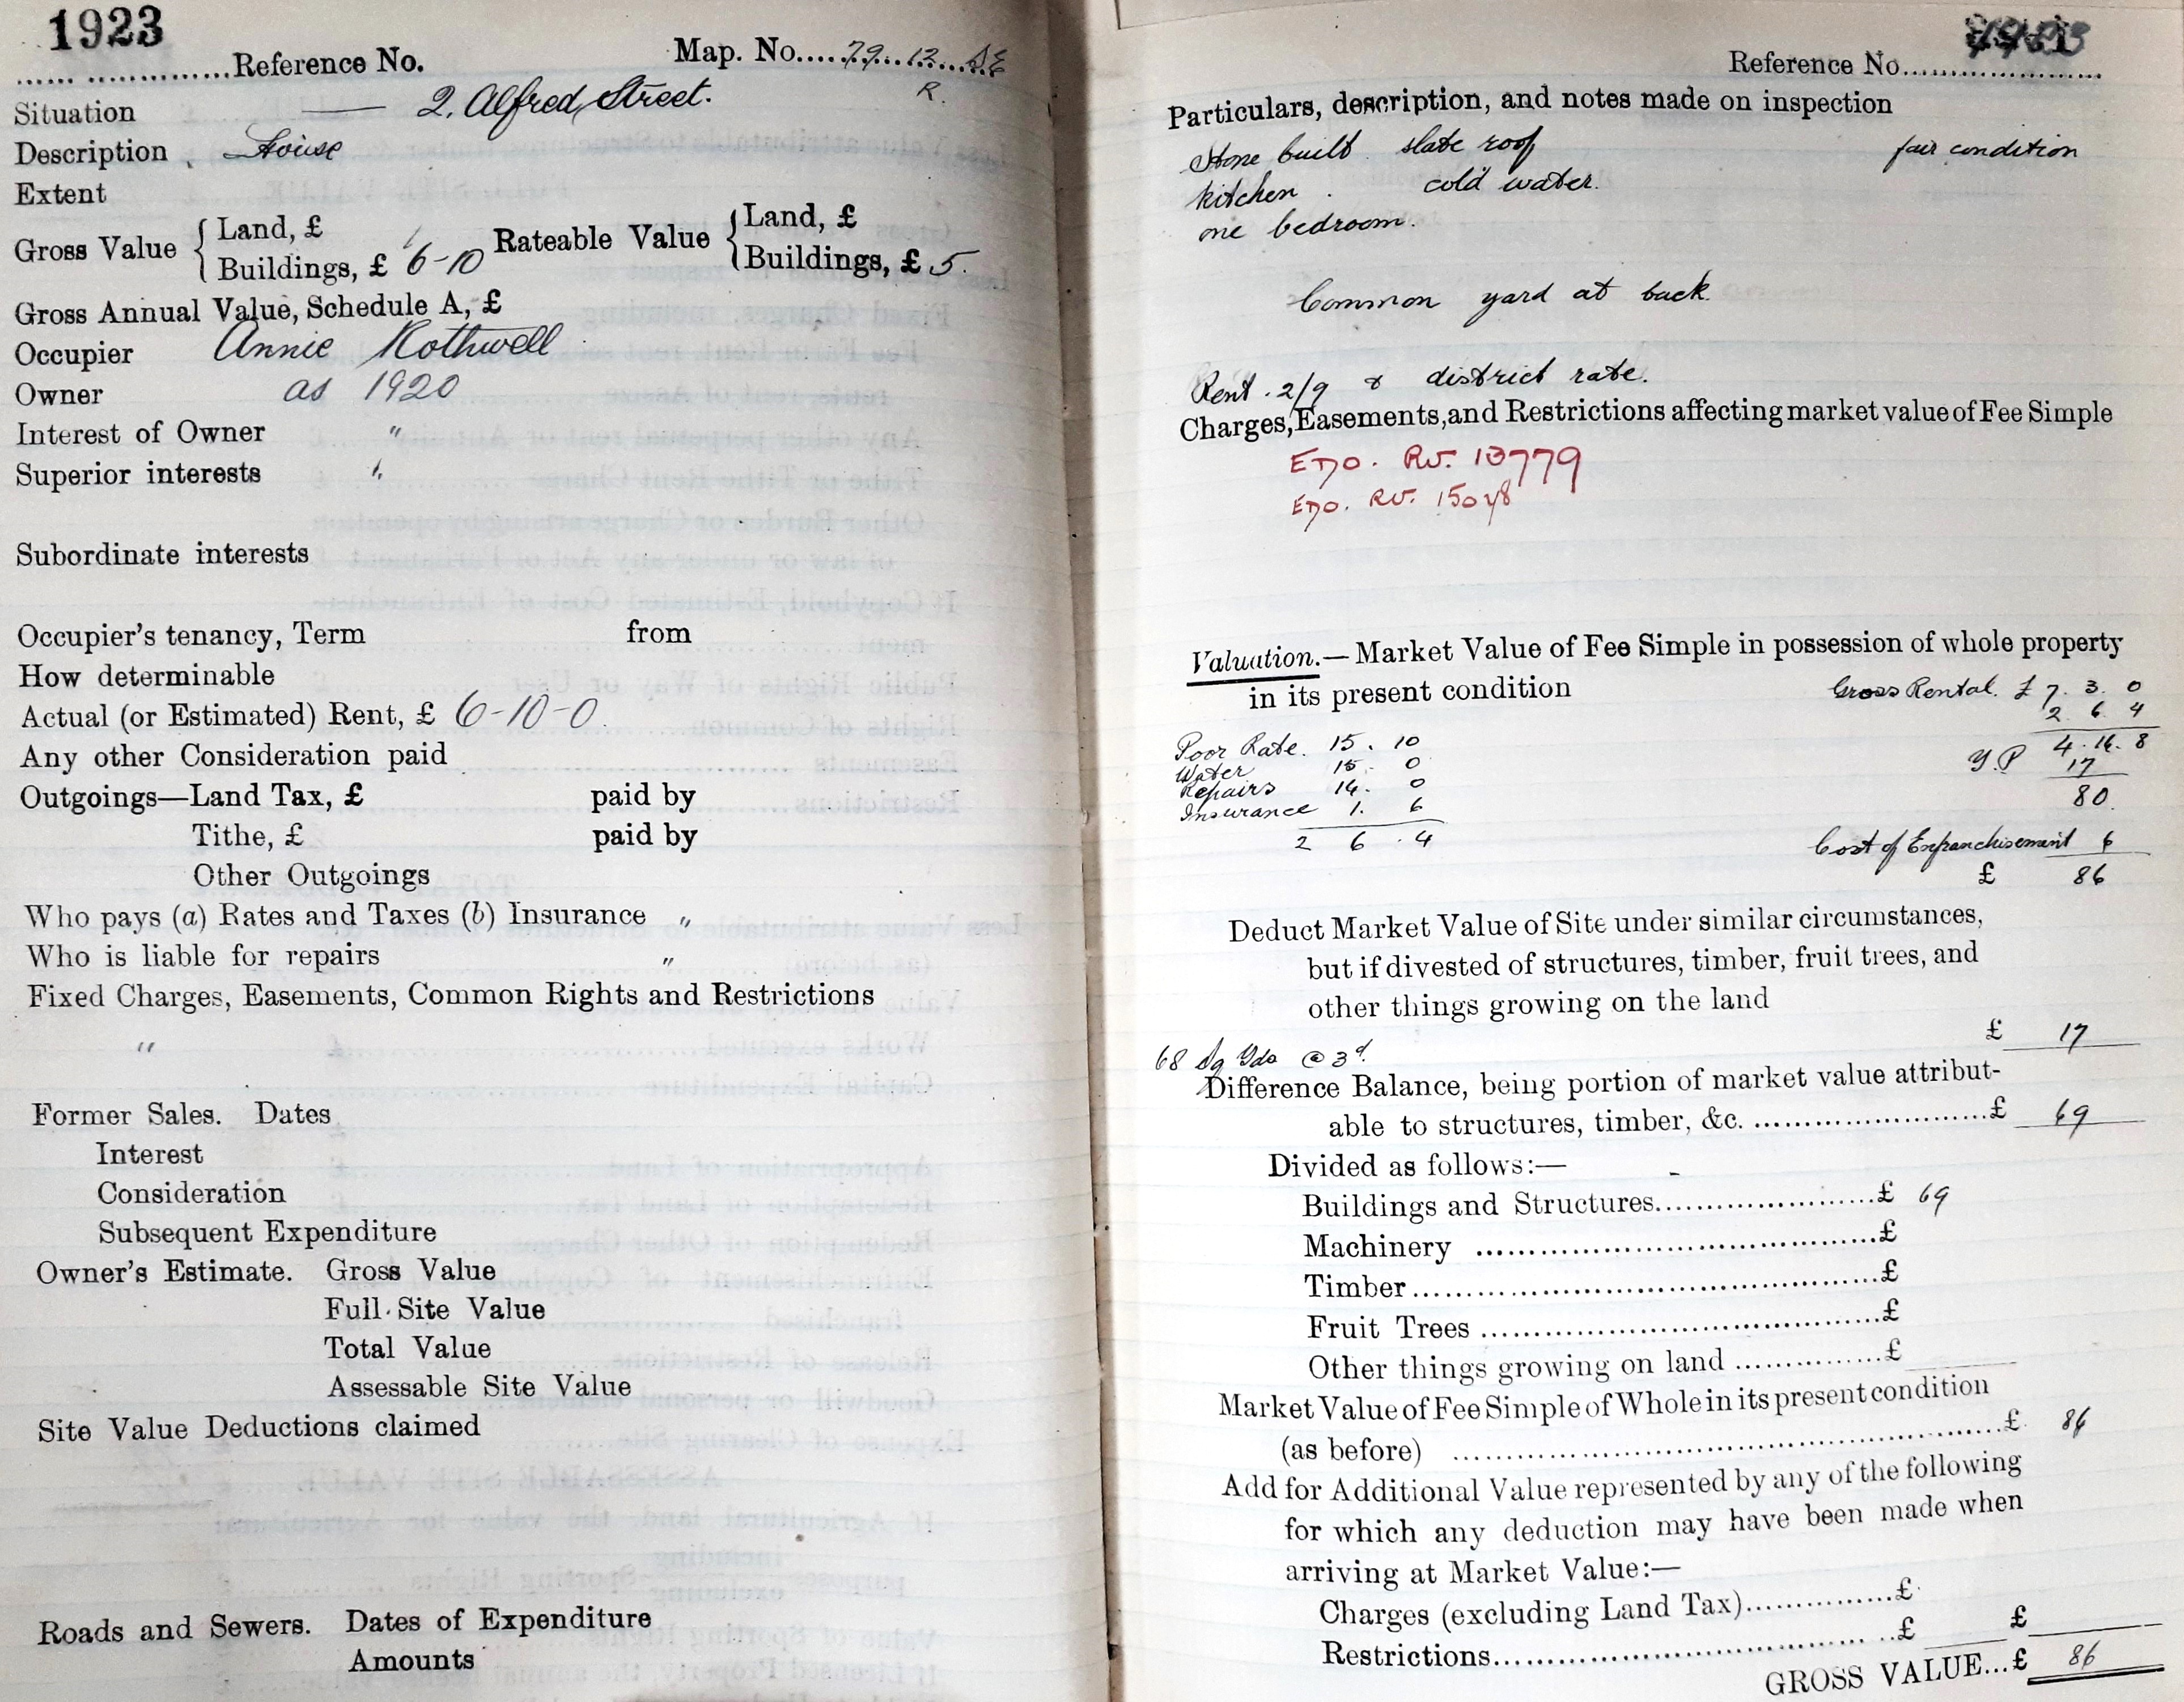 1923
Reference No. Map. No. 79.12. SE
R.
Situation — 2. Alfred Street.
Description House
Extent
Gross Value { Land, £ Rateable Value { Land, £
Buildings, £ 6-10 Buildings, £ 5.
Gross Annual Value, Schedule A, £
Occupier Annie Rothwell
Owner as 1920
Interest of Owner "
Superior interests "
Subordinate interests
Occupier's tenancy, Term from
How determinable
Actual (or Estimated) Rent, £ 6-10-0.
Any other Consideration paid
Outgoings—Land Tax, £ paid by
Tithe, £ paid by
Other Outgoings
Who pays (a) Rates and Taxes (b) Insurance "
Who is liable for repairs "
Fixed Charges, Easements, Common Rights and Restrictions
"
Former Sales. Dates
Interest
Consideration
Subsequent Expenditure
Owner's Estimate. Gross Value
Full Site Value
Total Value
Assessable Site Value
Site Value Deductions claimed
Roads and Sewers. Dates of Expenditure
Amounts
Reference No.
Particulars, description, and notes made on inspection
Stone built slate roof fair condition
kitchen . cold water.
one bedroom.
Common yard at back.
Rent . 2/9 & district rate.
Charges, Easements, and Restrictions affecting market value of Fee Simple
EDO. RV. 13779
EDO. RV.
Valuation.—Market Value of Fee Simple in possession of whole property
in its present condition Gross Rental. £ 7. 3. 0
2 6 4
Poor Rate. 15. 10 4.16.8
Water 15. 0 Y.P 17
Repairs 14. 0 80.
Insurance 1. 6
2 6 . 4 Cost of Enfranchisement 6
£ 86
Deduct Market Value of Site under similar circumstances,
but if divested of structures, timber, fruit trees, and
other things growing on the land
£ 17
68 Sq Yds @ 3d.
Difference Balance, being portion of market value attribut-
able to structures, timber, &c. £ 69
Divided as follows:—
Buildings and Structures £ 69
Machinery £
Timber £
Fruit Trees £
Other things growing on land £
Market Value of Fee Simple of Whole in its present condition
(as before) £ 86
Add for Additional Value represented by any of the following
for which any deduction may have been made when
arriving at Market Value:—
Charges (excluding Land Tax) £
Restrictions £ £
GROSS VALUE...£ 86